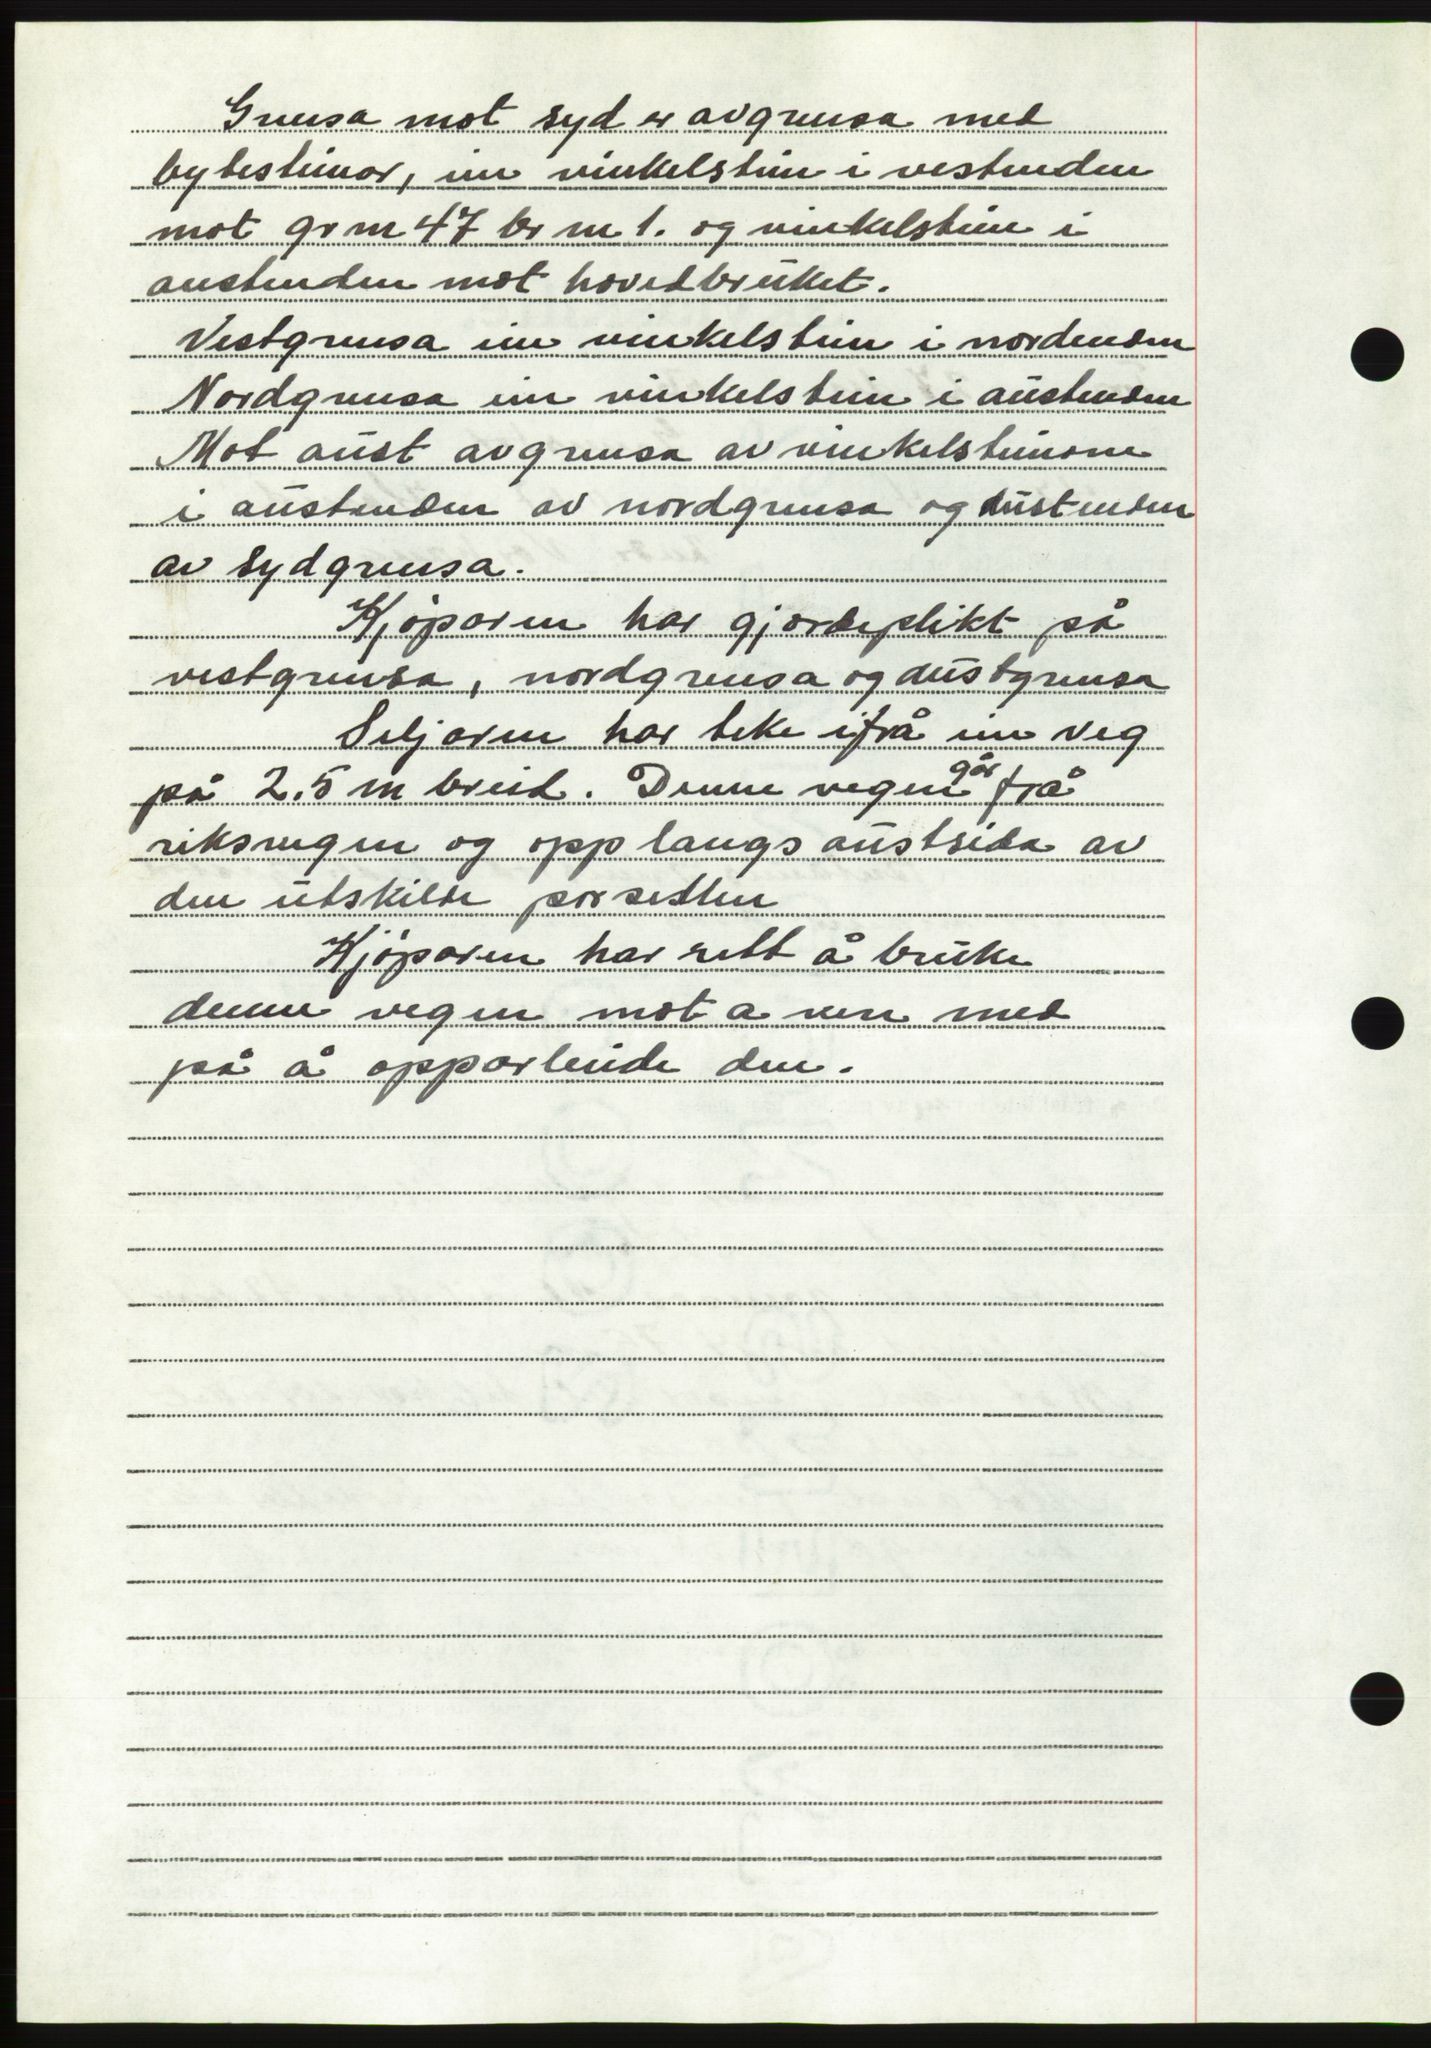 Grensa mot syd er avgrensa med
bytesteinar, ein vinkelstein i vestenden
mot gr n 47 br n 1. og vinkelstein i
austenden mot hovedbruket.
Vestgrensa ein vinkelstein i nordenden
Nordgrensa ein vinkelstein i austenden
Mot aust avgrensa av vinkelsteinane
i austenden av nordgrensa og austenden
av sydgrensa.
Kjøparen har gjordeplikt på
vestgrensa, nordgrensa og austgrensa
Seljaren har teke ifrå ein veg
på 2.5 m breid. Denne vegen går frå
riksvegen og opp langs austsida av
den utskilde parsellen
Kjøparen har rett å bruke
denne vegen mot a vere med
på å opparbeide den.